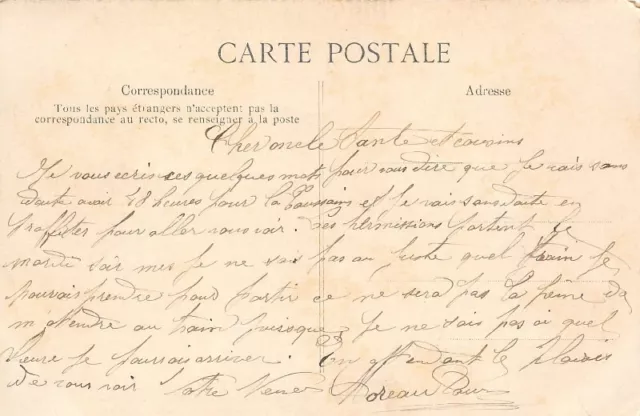 CARTE POSTALE
Correspondance
Adresse
Tous les pays étrangers n'acceptent pas la
correspondance au recto, se renseigner à la poste
Cher oncle Tante et cousins
Je vous ecris ces quelques mots pour vous dire que Je vais sans
doute avoir 48 heures pour la Toussaint et Je vais sans doute en
profiter pour aller vous voir. Les permissions partent le
mardi soir mes Je ne sais pas au juste quel train Je
pourrais prendre pour partir ce ne sera pas la peine de
m'atendre au train puisque Je ne sais pas à quel
heure Je pourrais arriver. En attendant le plaisir
de vous voir Votre Neveu Moreau